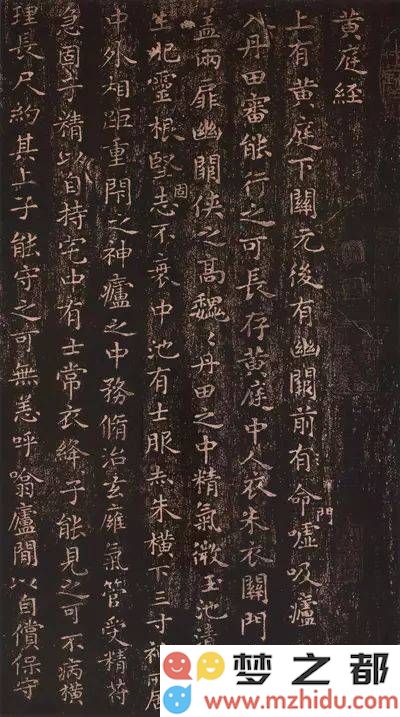 黄庭経
上有黄庭下關元後有幽闕前有命門噓吸廬
入丹田審能行之可長存黄庭中人衣朱衣關門
盖兩扉幽闕俠之高魏〻丹田之中精氣微玉池
生肥靈根堅固志不衰中池有士服赤朱橫下三寸神所居
中外相距重閇之神廬之中務脩治玄雍氣管受精符
急固子精以自持宅中有士常衣絳子能見之可不病橫
理長尺約其上子能守之可無恙呼噏廬間以自償保守
梦之都
www.mzhidu.com